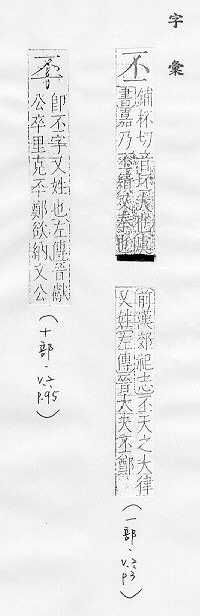 字彙
丕
鋪杯切音坏大也虞
書嘉乃丕績又奉也
前漢郊祀志丕天之大律
又姓左傳晉大夫丕鄭
(一部.V.2 P.3)
㔻
卽丕字又姓也左傳晉獻
公卒里克㔻鄭欲納文公
(十部.V.2 P.95)